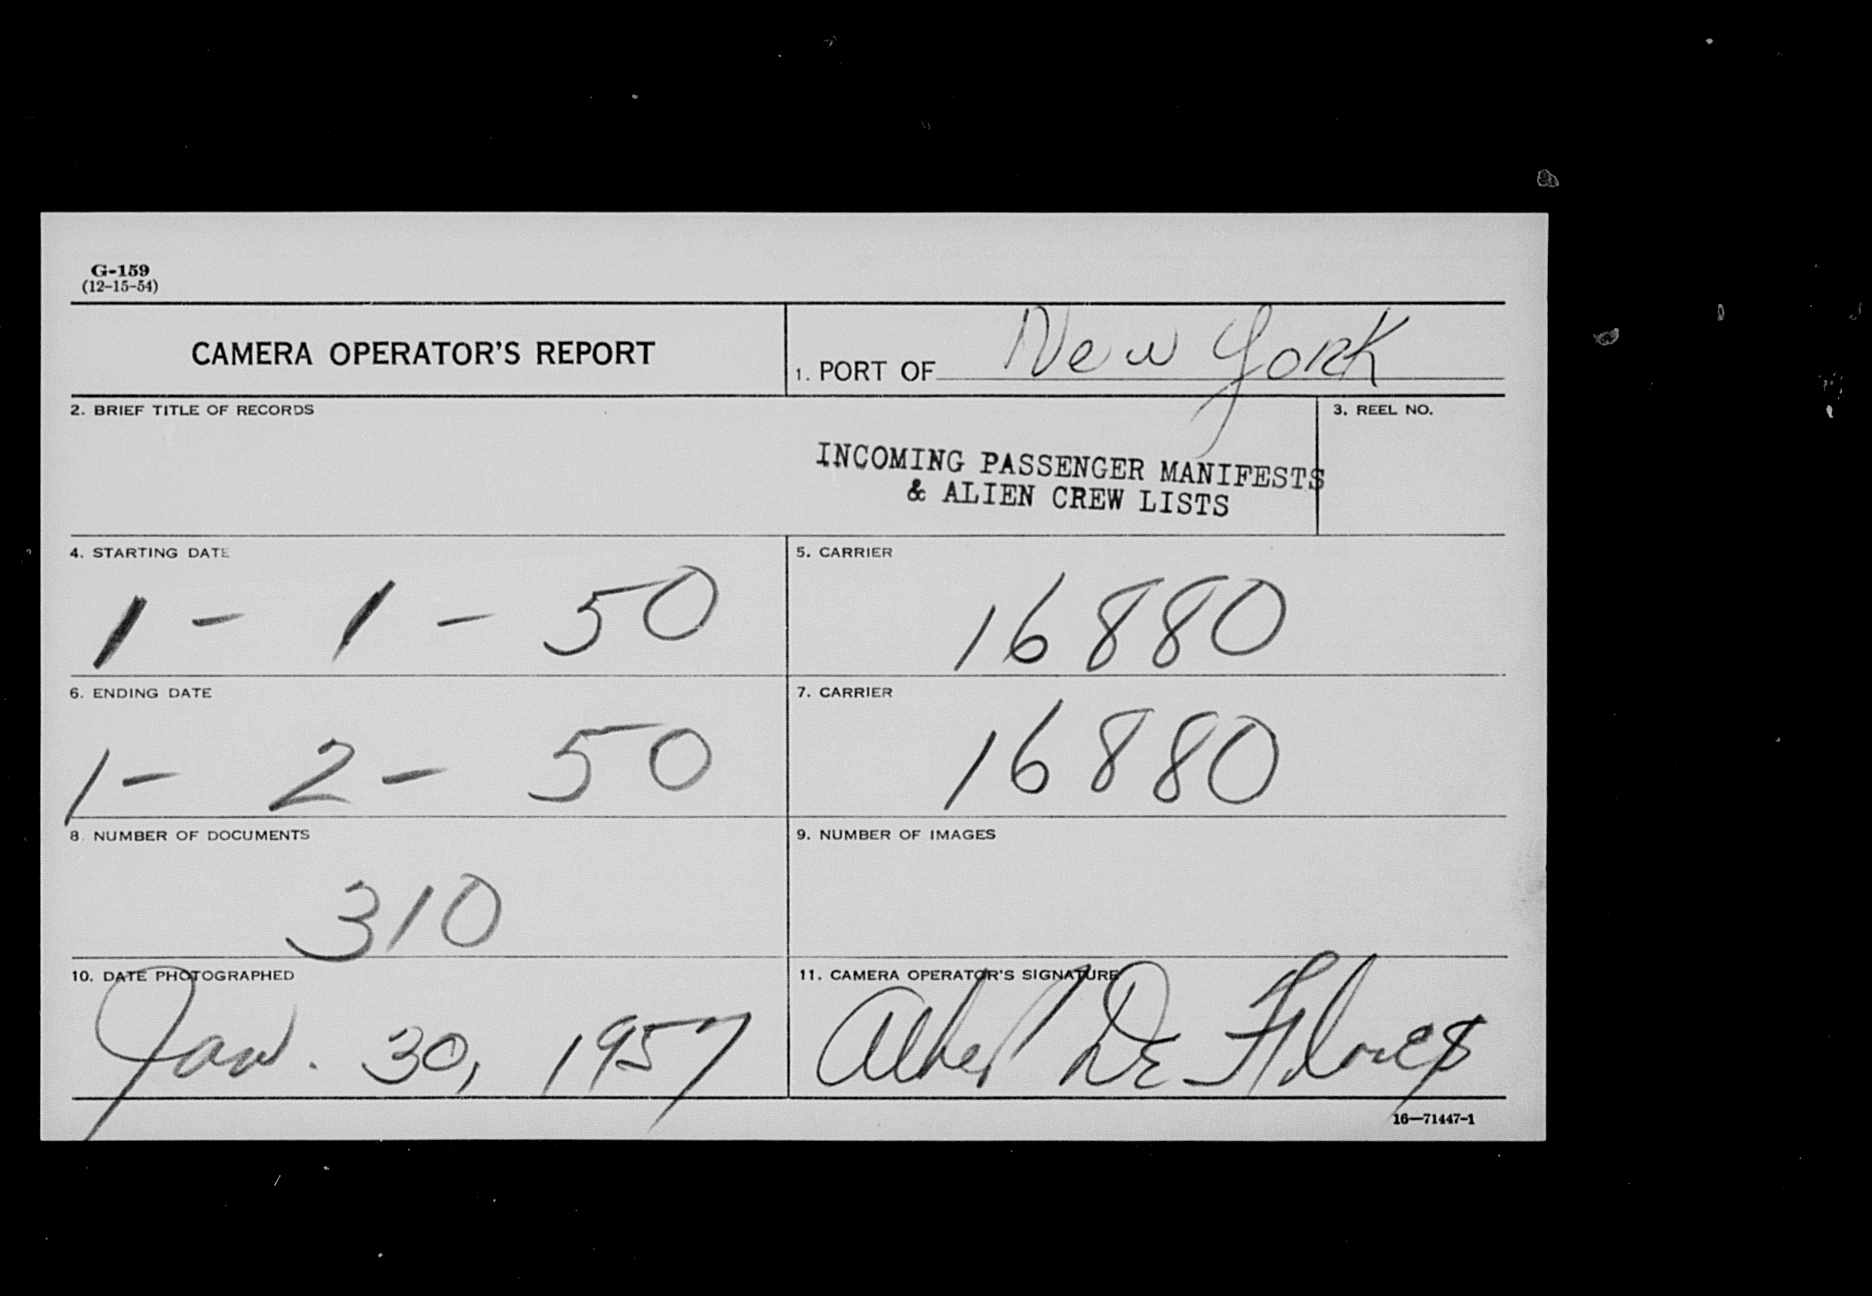 G-159
(12-15-54)
CAMERA OPERATOR'S REPORT
1. PORT OF New York
2. BRIEF TITLE OF RECORDS
3. REEL NO.
INCOMING PASSENGER MANIFESTS
& ALIEN CREW LISTS
4. STARTING DATE
5. CARRIER
1 - 1 - 50
16880
6. ENDING DATE
7. CARRIER
1 - 2 - 50
16880
8. NUMBER OF DOCUMENTS
9. NUMBER OF IMAGES
310
10. DATE PHOTOGRAPHED
11. CAMERA OPERATOR'S SIGNATURE
Jan. 30, 1957
Albert De
16—71447-1